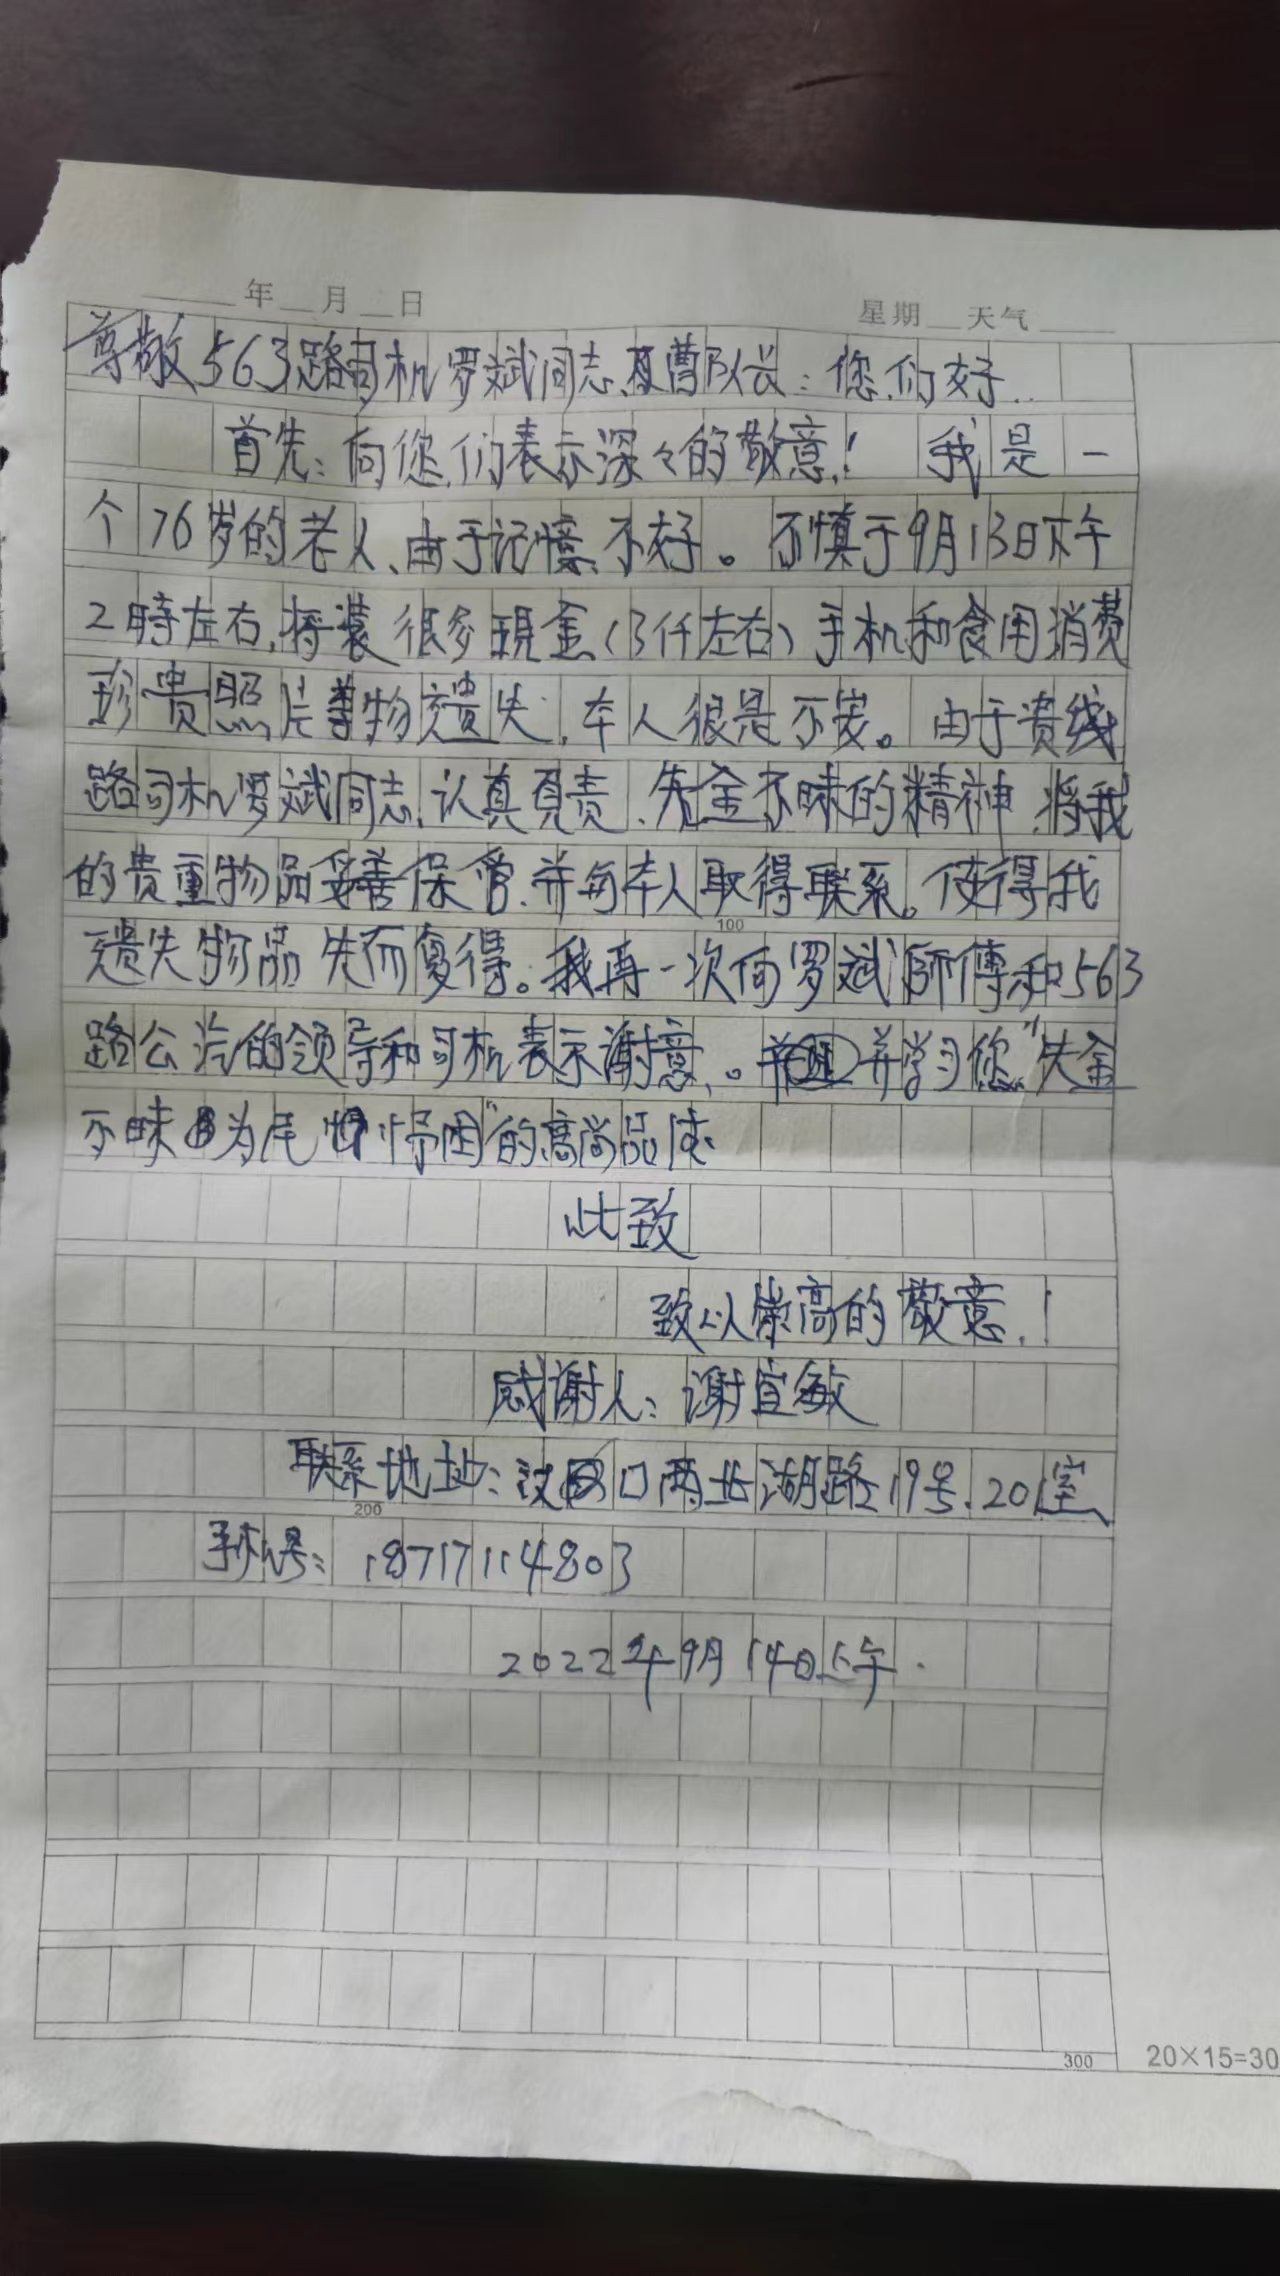 年 月 日 星期 天气
尊敬563路司机罗斌同志及曹队长：您们好
首先：向您们表示深々的敬意！ 我是一
个76岁的老人、由于记憶不好。不慎于9月13日下午
2時左右，将装很多現金（3仟左右）手机和食用消费
珍贵照片等物遗失，本人很是不安。由于贵线
路司机罗斌同志，认真負责、失金不昧的精神，将我
的贵重物品妥善保管，并与本人取得联系。使得我
遗失物品失而復得。我再一次向罗斌師傅和563
路公汽的领导和司机表示谢意。并学习您“失金
不昧 为 ”的高尚品质
此致
致以崇高的敬意！
感谢人：谢宜敏
联系地址：汉口西北湖路19号，201室
手机号：18717114803
2022年9月14日上午
100
200
300
20×15=30